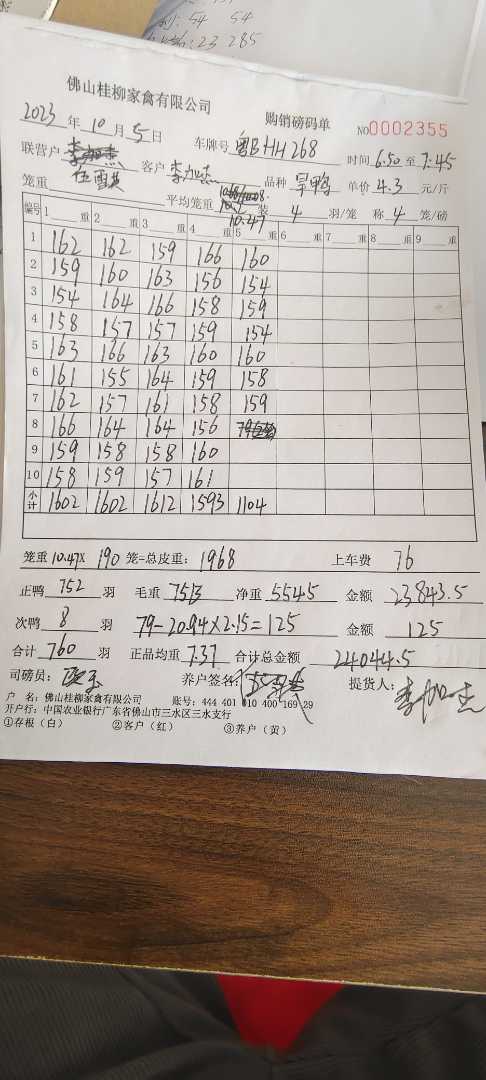 54 54
23 285
佛山桂柳家禽有限公司
购销磅码单
2023年10月5日 车牌号 粤BHH268 NO0002355
联营户 客户 李加杰 品种 旱鸭 时间 6.50 至 7:45
伍雪英
笼重 平均笼重 10.47 装 4 羽/笼 单价 4.3 元/斤 称 4 笼/磅
编号 1 重 2 重 3 重 4 重 5 重 6 重 7 重 8 重 9 重
1 162 162 159 166 160
2 159 160 163 156 154
3 154 164 166 158 159
4 158 157 157 159 154
5 163 166 163 160 160
6 161 155 164 159 158
7 162 157 161 158 159
8 166 164 164 156
9 159 158 158 160
10 158 159 157 161
小计 1602 1602 1612 1593 1104
笼重 10.47× 190 笼=总皮重: 1968 上车费 76
正鸭 752 羽 毛重 7513 净重 5545 金额 23843.5
次鸭 8 羽 79-20.94×2.15=125 金额 125
合计 760 羽 正品均重 7.37 合计总金额 24044.5
司磅员: 养户签名: 提货人: 李加杰
户 名: 佛山桂柳家禽有限公司 账号: 444 401 010 400 169 29
开户行: 中国农业银行广东省佛山市三水区三水支行
①存根(白) ②客户(红) ③养户(黄)